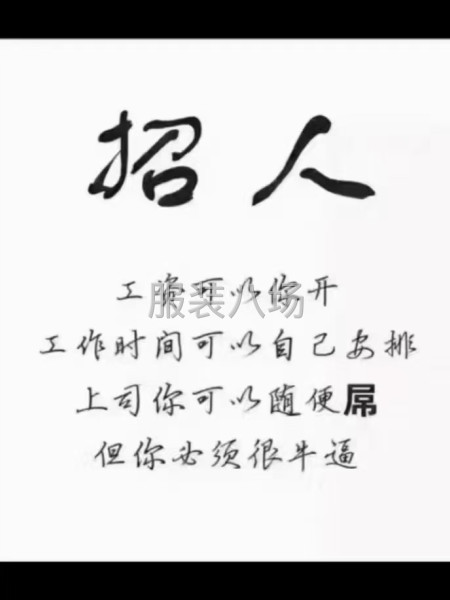 招人
工资可以你开
服装人场
工作时间可以自己安排
上司你可以随便屌
但你必须很牛逼